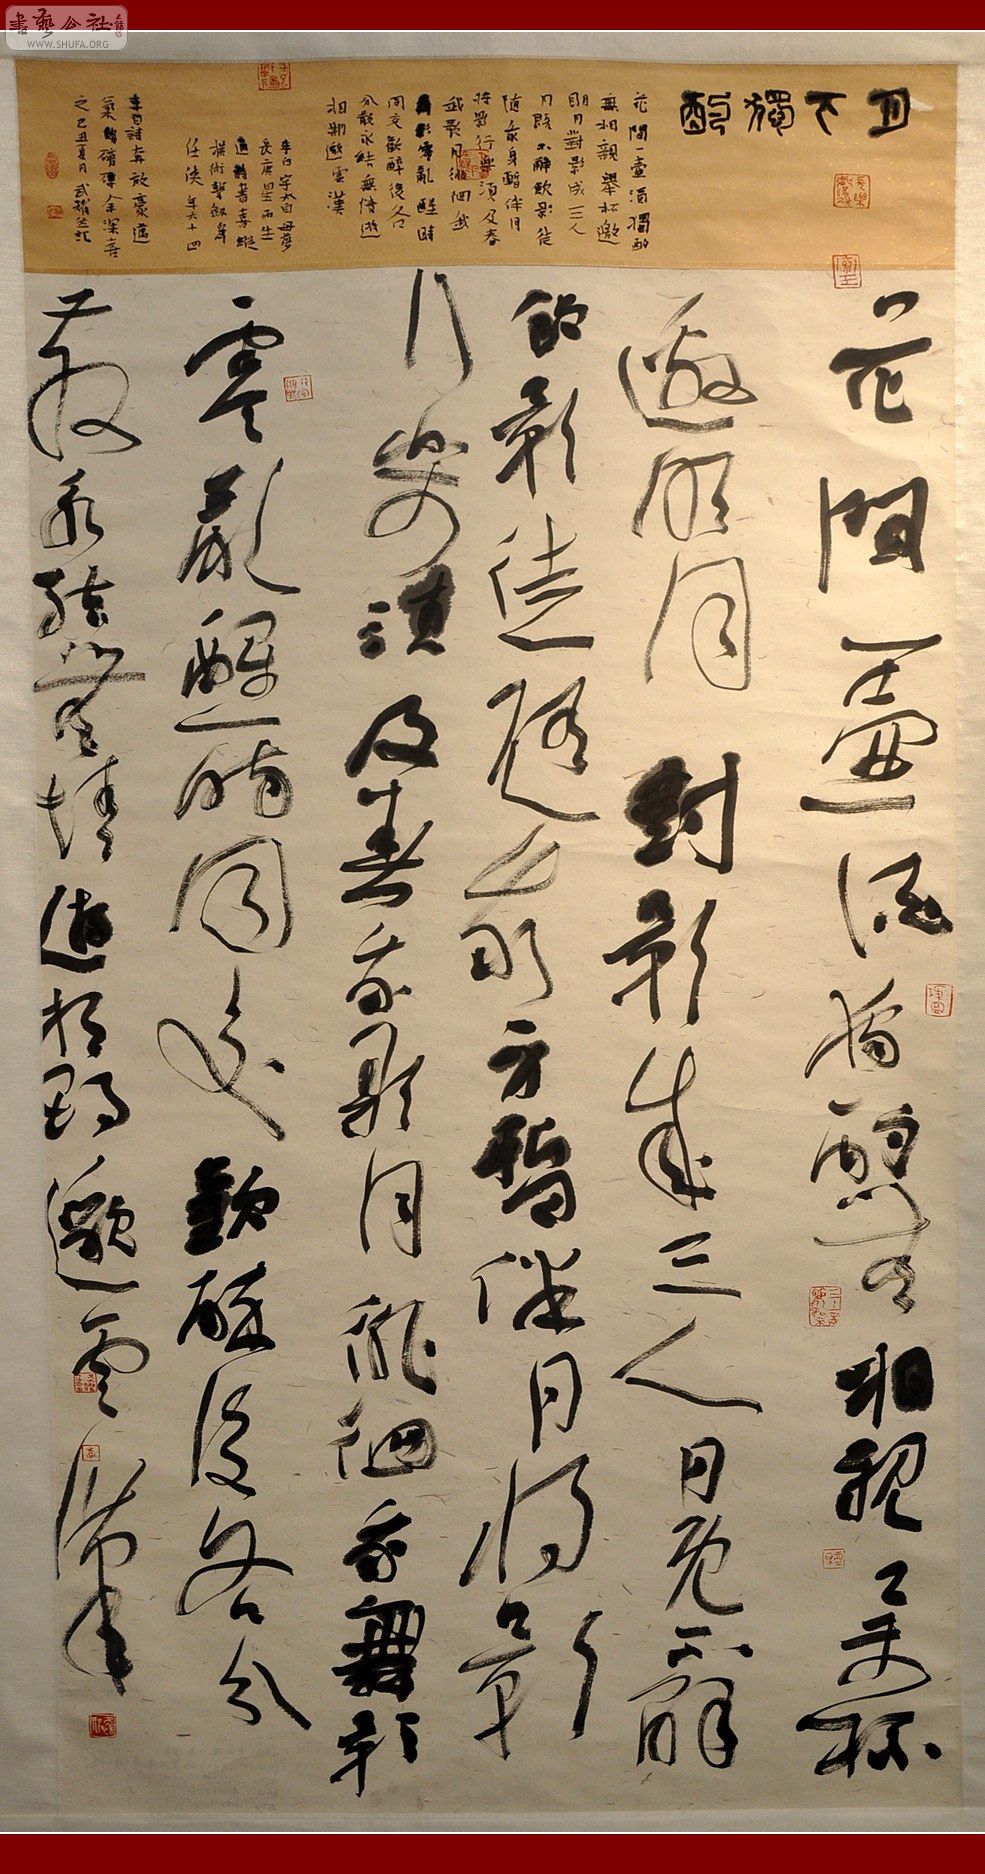 書藝公社
WWW.SHUFA.ORG
月下獨酌
花間一壺酒獨酌
無相親舉杯邀
明月對影成三人
月既不解飲影徒
隨我身暫伴月
將影行樂須及春
我歌月徘徊我
舞影零亂醒時
同交歡醉後各
分散永結無情遊
相期邈雲漢
李白字太白母夢
長庚星而生
通詩書喜縱
橫術擊劍爲
任俠 年六十四
李白詩奔放豪邁
氣勢磅礴余深喜
之己丑夏月武
花間一壺酒獨酌無相親舉杯
邀明月對影成三人月既不解
飲影徒隨我身暫伴月將影
行樂須及春我歌月徘徊我舞影
零亂醒時同交歡醉後各分
散永結無情遊相期邈雲漢